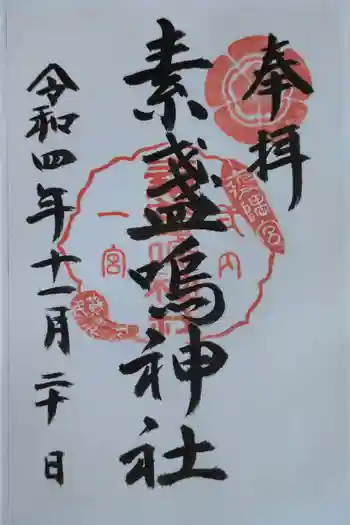 奉拝
素盞嗚神社
令和四年十一月二十日
式内
一宮